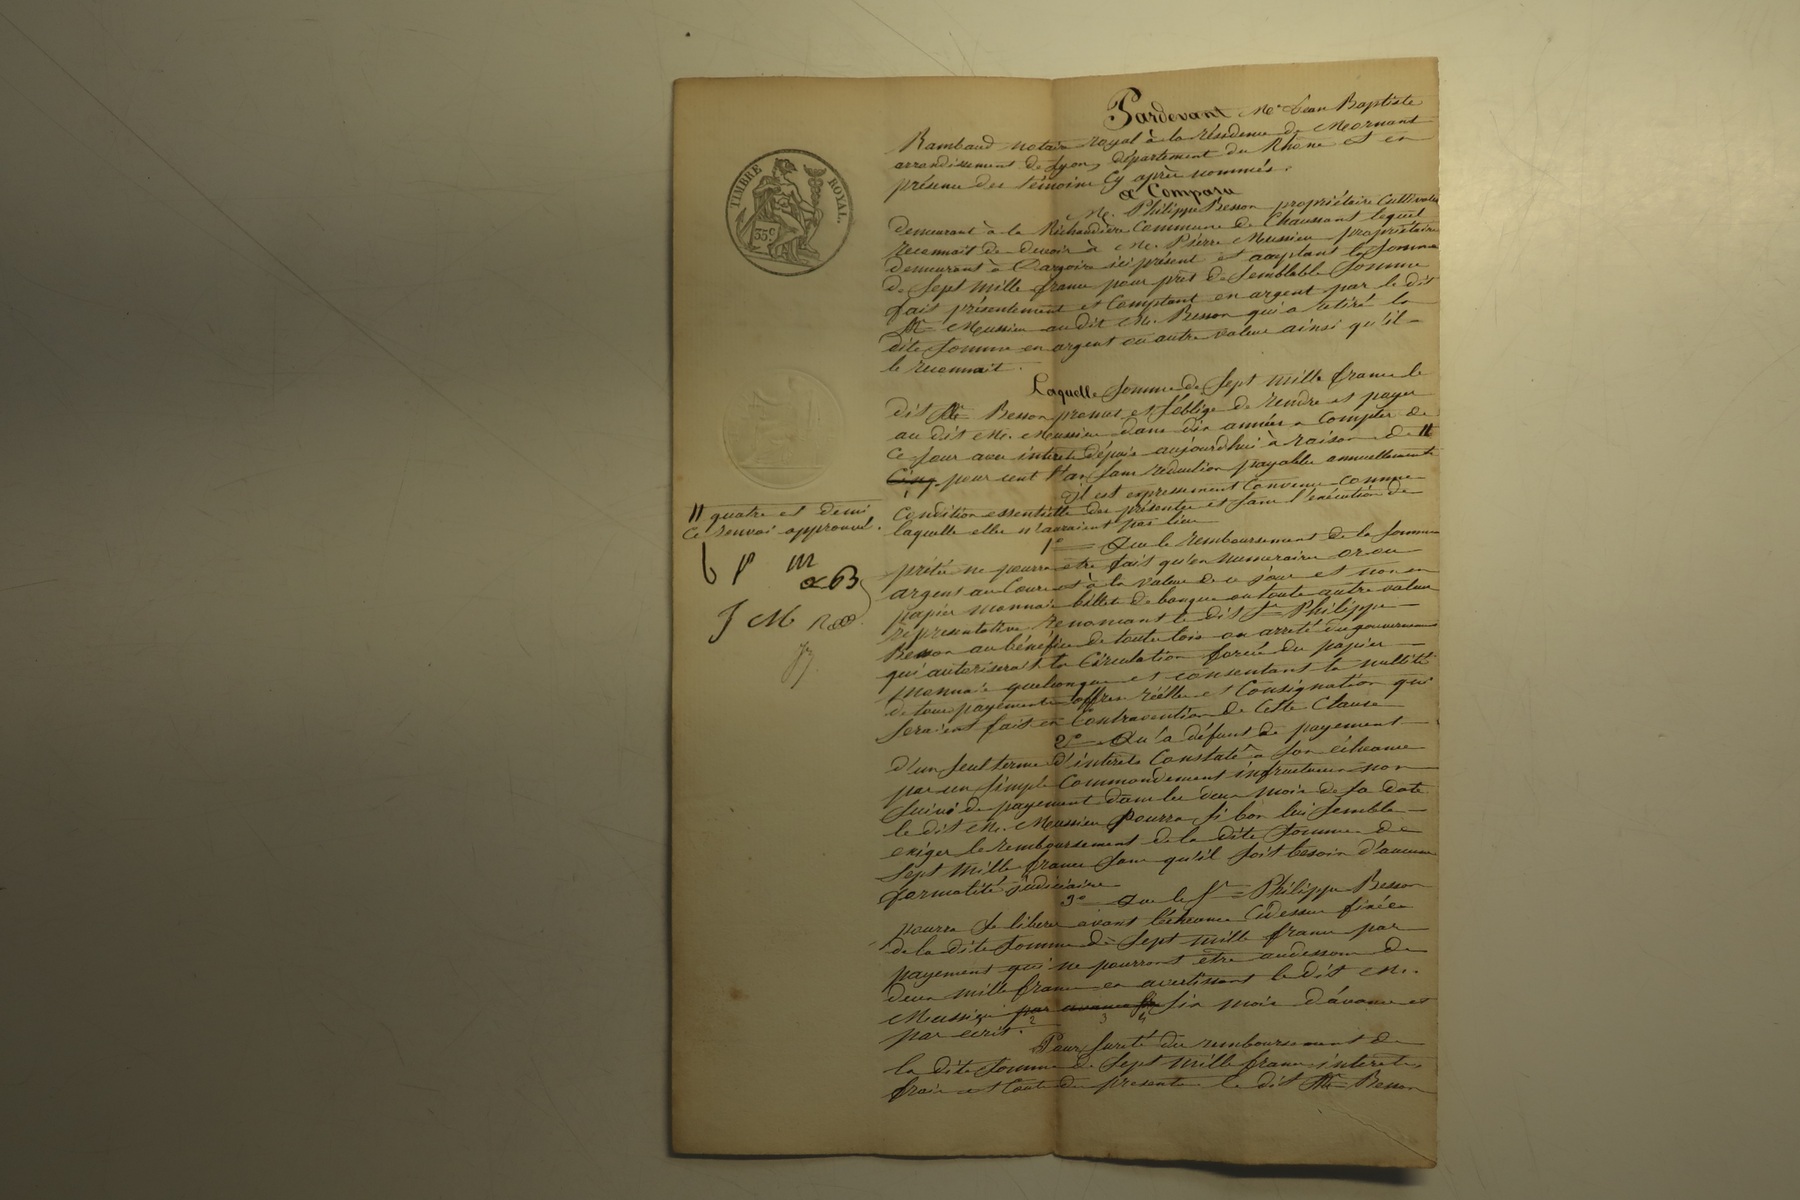 TIMBRE ROYAL
35c
Pardevant Me Jean Baptiste
Rambaud notaire royal à la résidence de Mornant
arrondissement de Lyon, département du Rhône et en
présence des témoins Cy après nommés.
a Comparu
M. Philippe Besson propriétaire Cultivateur
demeurant à la Richaudière Commune de Chaussant lequel
reconnait de devoir à M. Pierre Mussieu propriétaire
demeurant à Dargoire ici présent et acceptant la Somme
de Sept mille francs pour prêt de Semblable Somme
fait présentement et Comptant en argent par le dit
Mr Mussieu au dit M. Besson qui a retiré la
dite Somme en argent ou autre valeur ainsi qu'il
le reconnait.
Laquelle Somme de Sept mille francs le
dit Mr Besson promet et s'oblige de rendre et payer
au dit M. Mussieu dans dix années a Compter de
Ce jour avec intérets dépuis aujourdhui à raison de //
Cinq pour cent l'an Sans réduction payables annuellement
Il est expressément Convenu comme
Condition essentielle des présentes et Sans l'exécution de
laquelle elles n'auraient pas lieu
// quatre et demi
Ce renvoi approuvé.
b P m
J M
1o Que le remboursement de la Somme
prêtée ne pourra etre fait qu'en numéraire or ou
argent au Cours et à la valeur de ce jour et non en
papier monnaie billets de banque ou toute autre valeur
réprésentative renonçant le dit Sr Philippe
Besson au bénéfice de toutes lois ou arrêté du gouvernement
qui autoriserait la Circulation forcée du papier
monnaie quelconque et consentant la nullité
de tous payements offres réelles et Consignation qui
Seraient faits en Contravention de Cette Clause
2o Qu'a défaut de payement
d'un Seul terme d'intérets Constaté a Son échéance
par un Simple Commandement infructueux non
Suivi de payement dans les deux mois de Sa date
le dit M. Mussieu pourra Si bon lui Semble
exiger le remboursement de la dite Somme de
Sept mille francs Sans qu'il Soit besoin d'aucune
formalité judiciaire
3o Que le Sr Philippe Besson
pourra Se libérer avant l'échéance Cidessus fixée
de la dite Somme de Sept mille francs par
payement qui ne pourront être audessous de
deux mille francs en avertissant le dit M.
Mussieu par avance Six mois d'avance et
par écrit.
2 3
Pour Sureté du remboursement de
la dite Somme de Sept mille francs intérets,
frais et Couts des présentes le dit Mr Besson